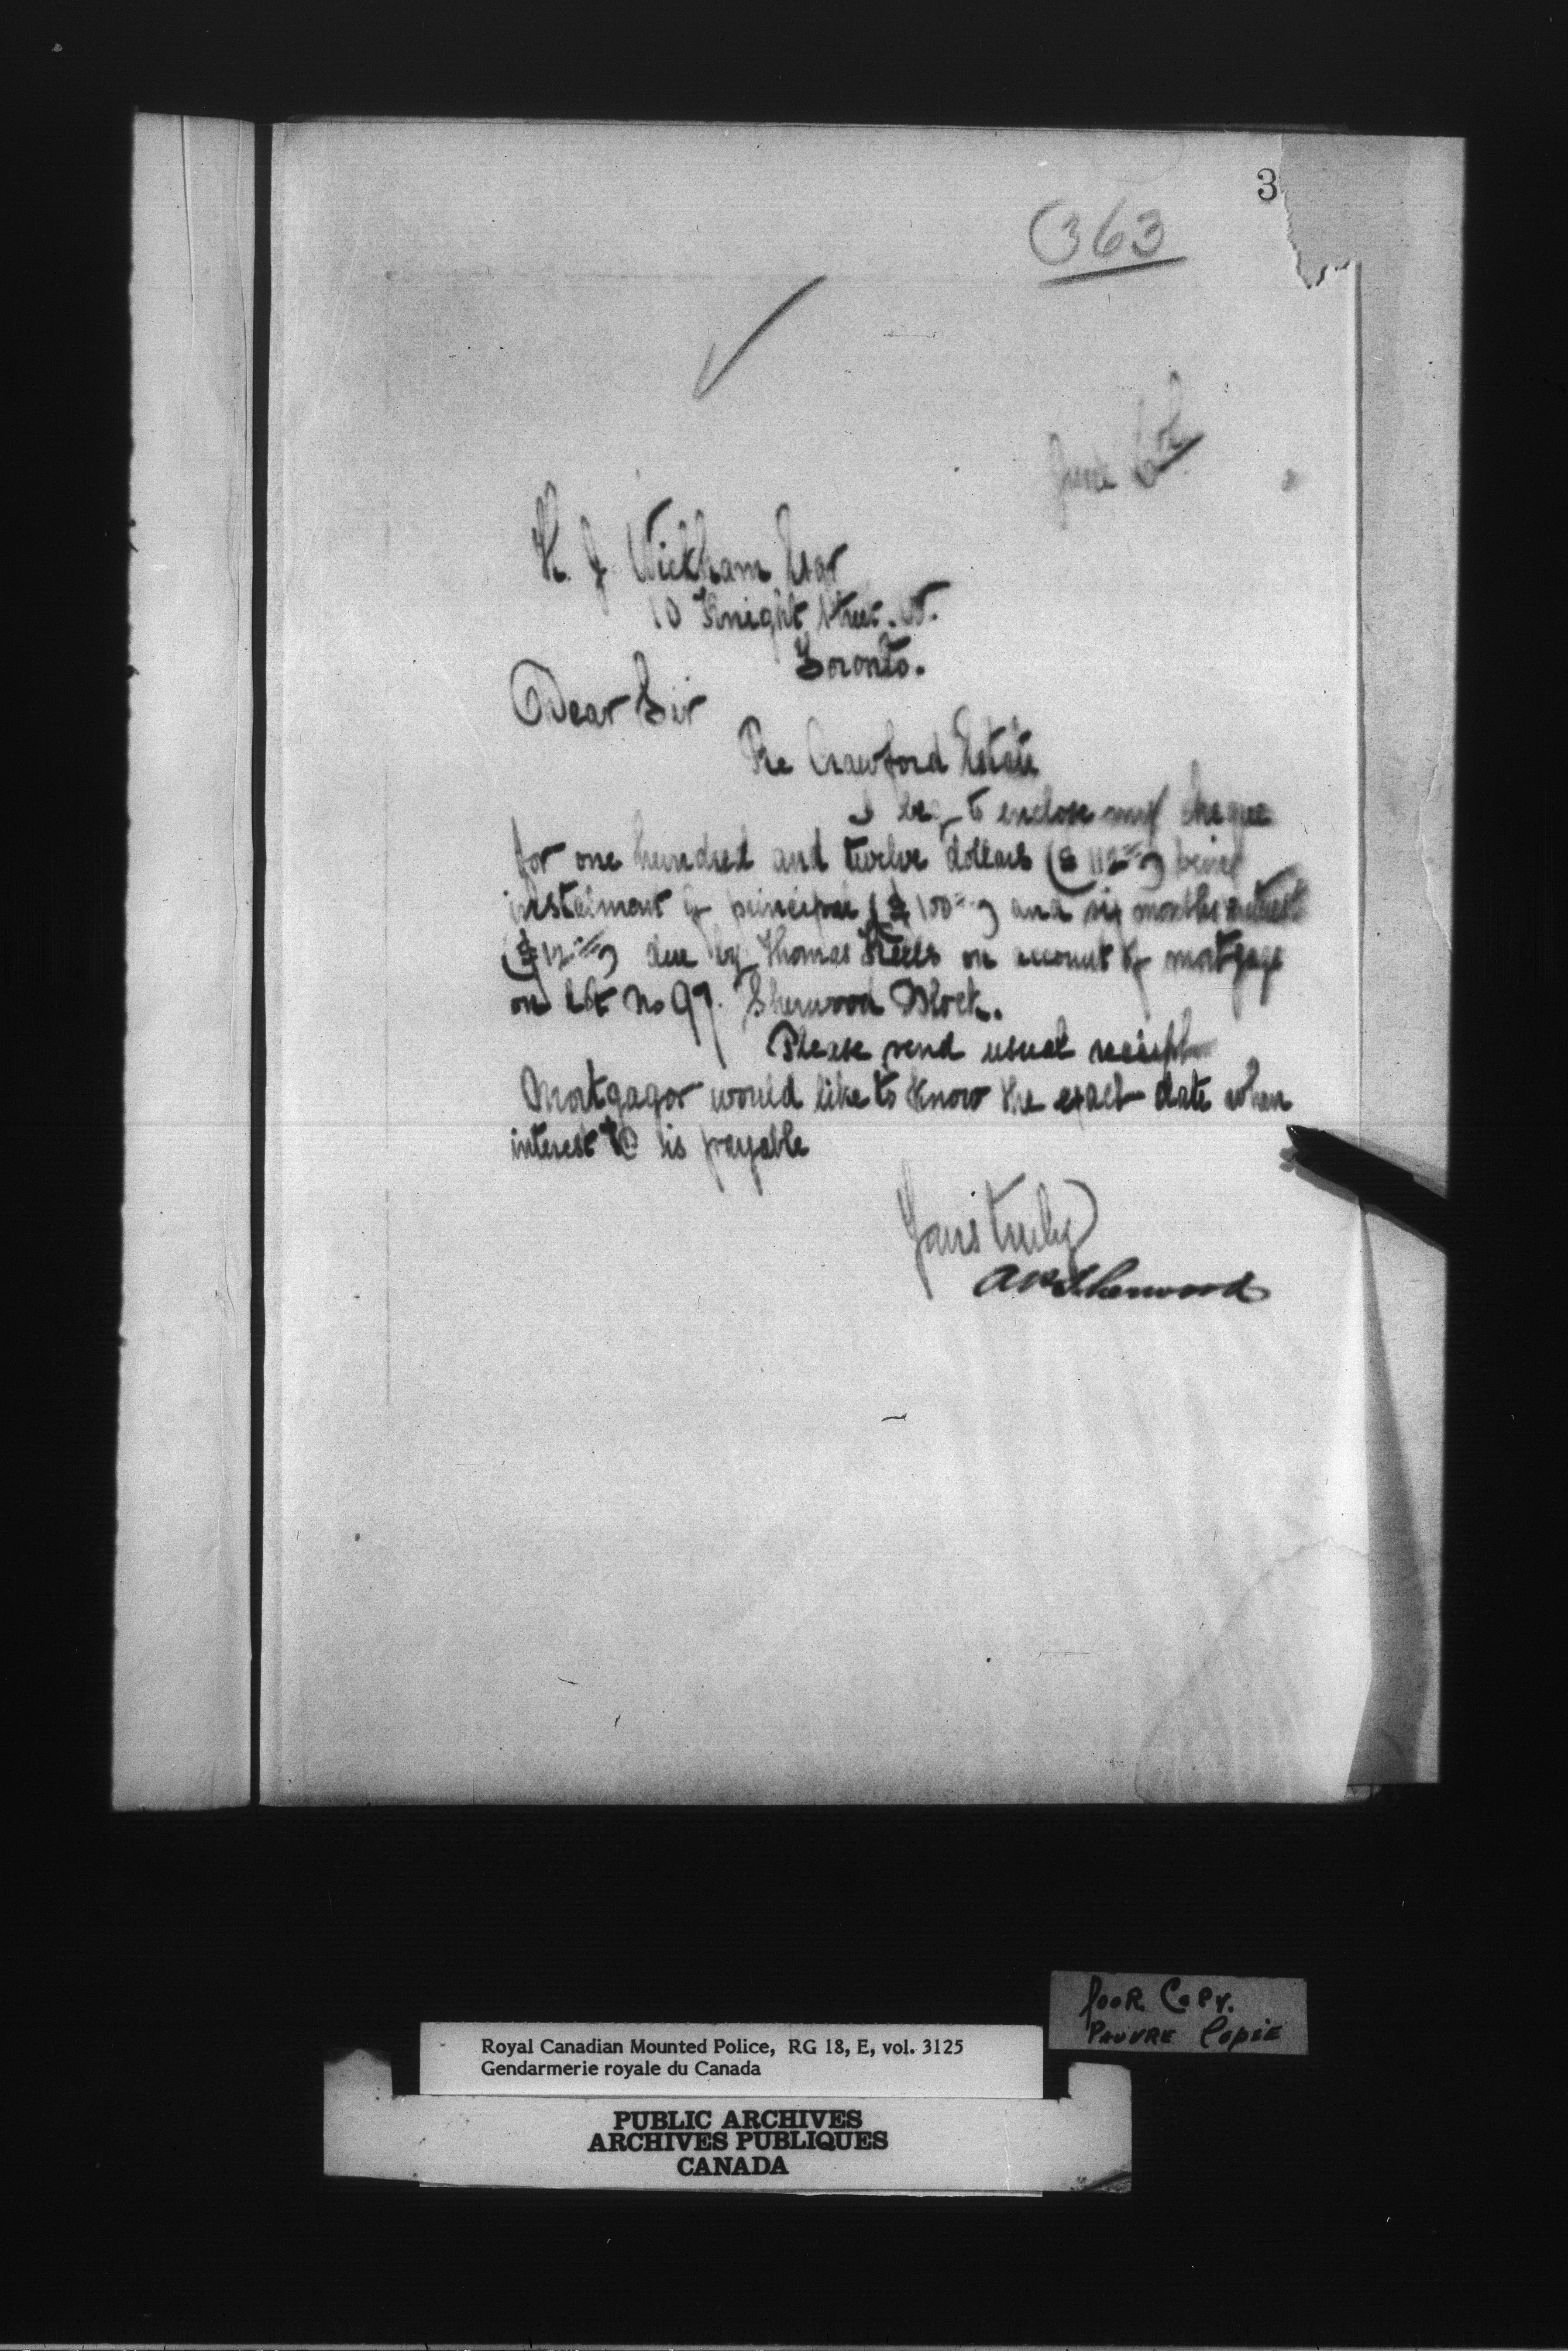 3
363
June 6th
H. J. Wickham Esqr
10 Knight Street. W.
Toronto.
Dear Sir
Re Crawford Estate
I beg to enclose my cheque
for one hundred and twelve dollars ($112 being
instalment of principal ($100 and six months interest
($12 due by Thomas on account of mortgage
on lot No 97. Sherwood Block.
Please send usual receipt
Mortgagor would like to know the exact date when
interest &c is payable
Yours truly
A P Sherwood
Poor Copy.
Pauvre Copie
Royal Canadian Mounted Police, RG 18, E, vol. 3125
Gendarmerie royale du Canada
PUBLIC ARCHIVES
ARCHIVES PUBLIQUES
CANADA